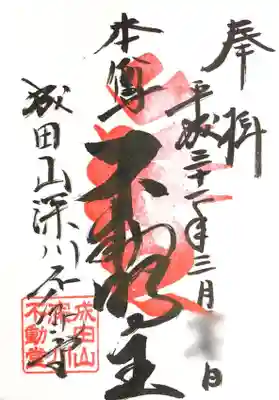 奉拝
平成 年三月 日
本尊
不動明王
成田山深川不動堂
成田山
深川
不動堂